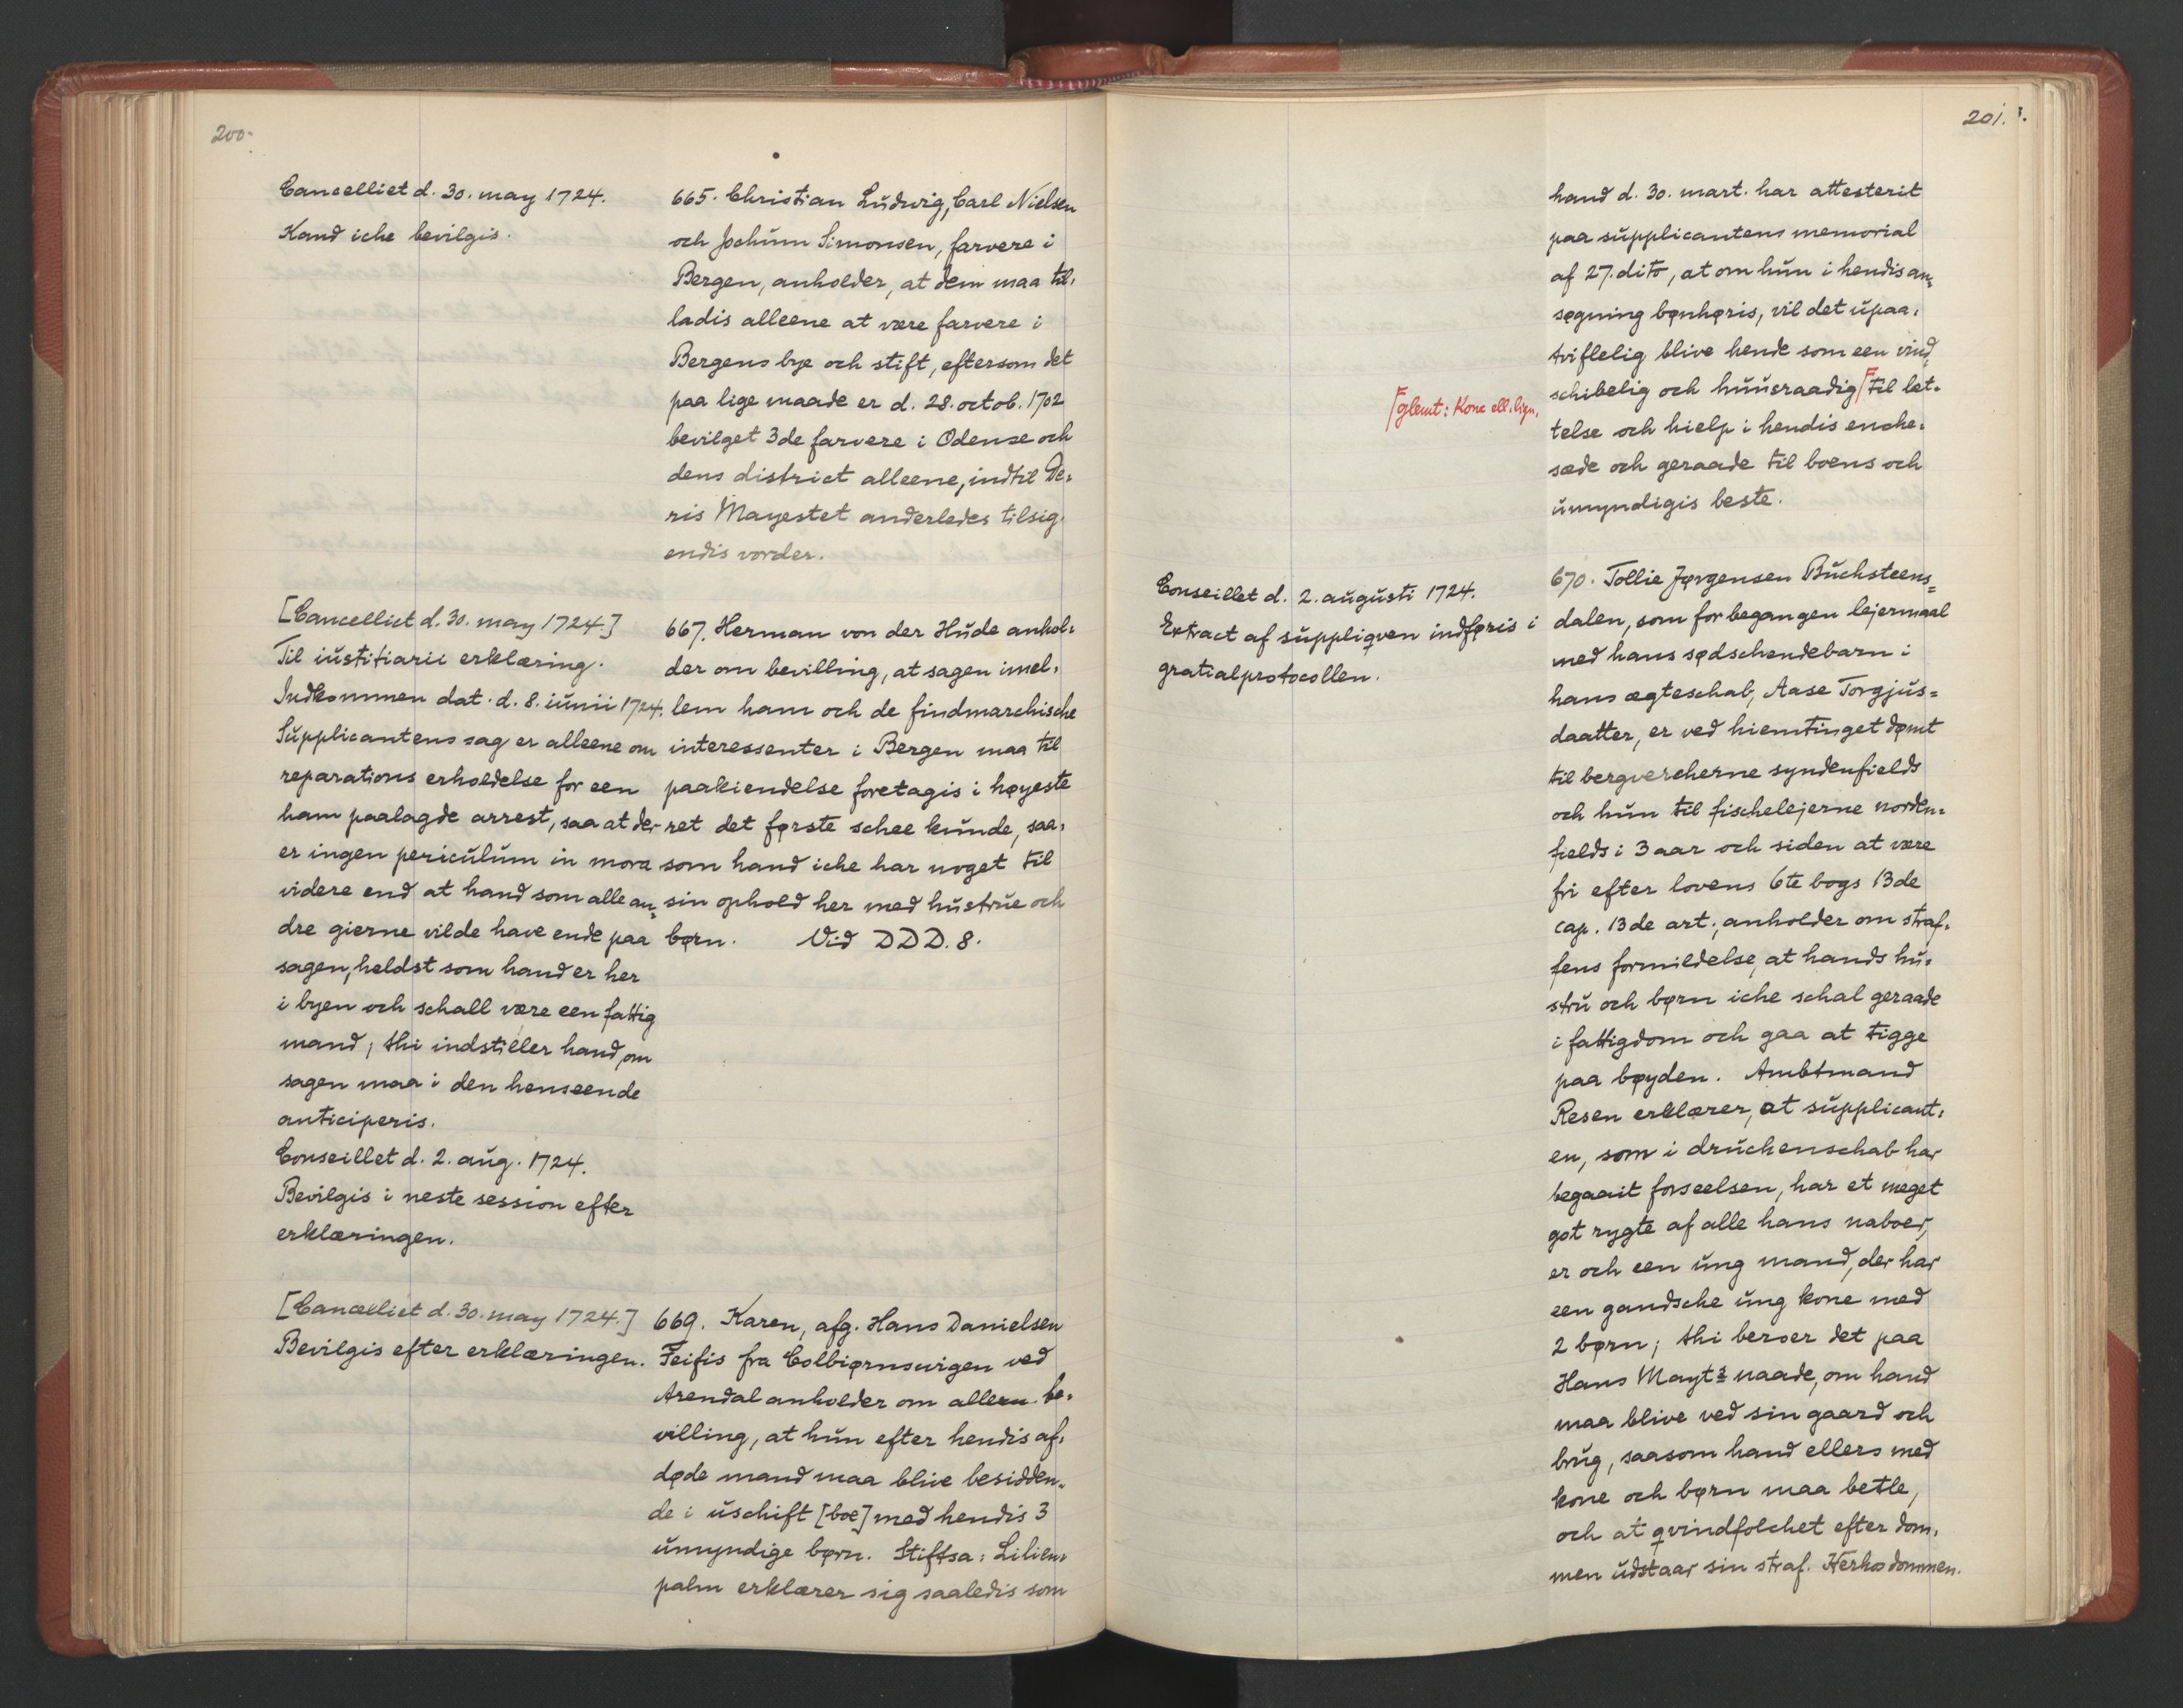 200.
Cancelliet d. 30. may 1724.
Kand iche bevilgis.
665. Christian Ludwig, Carl Nielsen
och Jochum Simonsen, farvere i
Bergen, anholder, at dem maa til-
ladis alleene at være farvere i
Bergens bye och stift, eftersom det
paa lige maade er d. 28. octob. 1702
bevilget 3de farvere i Odense och
dens district alleene, indtil De-
ris Mayestet anderledes tilsig-
endis vorder.
[Cancelliet d. 30. may 1724]
Til iustitiarii erklæring.
Indkommen dat. d. 8. iunii 1724.
Supplicantens sag er alleene om
reparations erholdelse for een
ham paalagde arrest, saa at der
er ingen periculum in mora
videre end at hand som alle an-
dre gierne vilde have ende paa
sagen, heldst som hand er her
i byen och schall være een fattig
mand; thi indstiller hand, om
sagen maa i den henseende
anticiperis.
Conseillet d. 2. aug. 1724.
Bevilgis i neste session efter
erklæringen.
667. Herman von der Hude anhol-
der om bevilling, at sagen imel-
lem ham och de findmarchische
interessenter i Bergen maa til
paakiendelse foretagis i høyeste
ret det første schee kunde, saa-
som hand iche har noget til
sin ophold her med hustrue och
børn. Vid DDD. 8.
[Cancelliet d. 30. may 1724.]
Bevilgis efter erklæringen.
669. Karen, afg. Hans Danielsen
Feifis fra Colbiørnsvigen ved
Arendal anholder om allern. be-
villing, at hun efter hendis af-
døde mand maa blive besidden-
de i uschift [boe] med hendis 3
umyndige børn. Stiftsa: Lilien-
palm erklærer sig saaledis som
201.
hand d. 30. mart. har attesterit
paa supplicantens memorial
af 27. dito, at om hun i hendis an-
søgning bønhøris, vil det upaa-
tviflelig blive hende som een vind-
schibelig och huusraadig ┌ til let-
telse och hielp i hendis enche-
sæde och geraade til boens och
umyndigis beste.
┌ glemt: Kone ell. lign.
Conseillet d. 2. augusti 1724.
Extract af suppliqven indføris i
gratialprotocollen.
670. Tollie Jørgensen Buchsteens-
dalen, som for begangen lejermaal
med hans sødschendebarn i
hans ægteschab, Aase Torgjus-
daatter, er ved hiemtinget dømt
til bergvercherne syndenfields
och hun til fischelejerne norden-
fields i 3 aar och siden at være
fri efter lovens 6te bogs 13de
cap. 13de art., anholder om straf-
fens formildelse, at hands hu-
stru och børn iche schal geraade
i fattigdom och gaa at tigge
paa bøyden. Ambtmand
Resen erklærer, at supplicant-
en, som i druchenschab har
begaait forseelsen, har et meget
got rygte af alle hans naboer,
er och een ung mand, der har
een gandsche ung kone med
2 børn; thi beroer det paa
Hans Mayts naade, om hand
maa blive ved sin gaard och
brug, saasom hand ellers med
kone och børn maa betle,
och at qvindfolchet efter dom-
men udstaar sin straf. Herhos dommen.